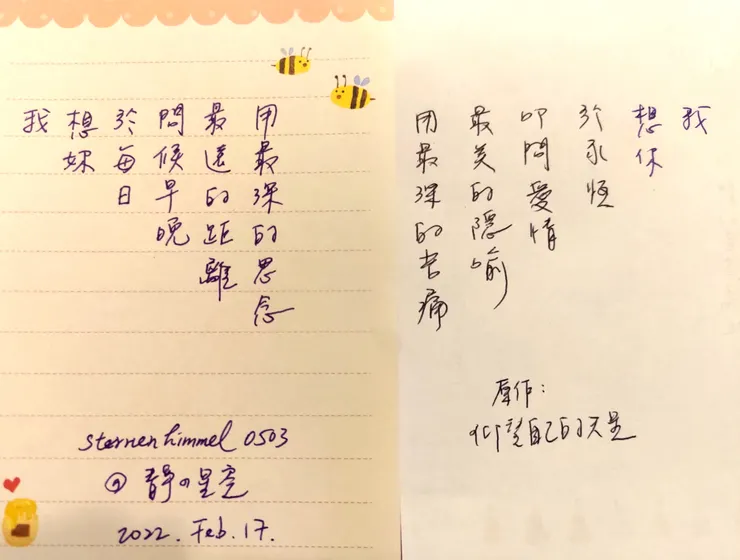 用最深的思念
最遠的距離
問候早晚
於每日
想妳
我
sternenhimmel 0503
@ 靜の星空
2022. Feb. 17.
我
想你
於永恆
叩問愛情
最美的隱喻
用最深的苦痛
原作：
仰望自己的天